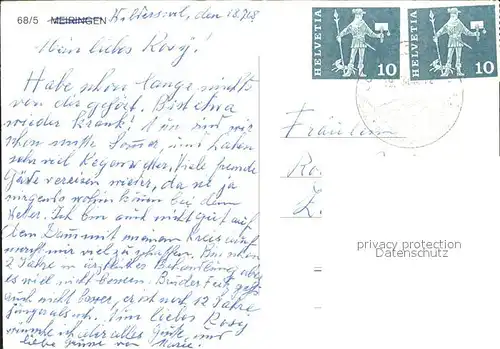 68/5 MEIRINGEN
Wilderswil, den 18.7.68
Mein liebes Rosy!
Habe schon lange nichts
von dir gehört. Bist etwa
wieder krank! Nun sind wir
schon mitte Sommer, und haben
sehr viel Regenwetter, Viele fremde
Gäste verreisen wieder, da sie ja
nirgends wohin können bei dem
Wetter. Ich bin auch nicht gut auf
dem Damm mit meinem Kreis auf
macht mir viel zu schaffen. Bin schon
2 Jahre in ärztlicher Behandlung aber
es will nicht bessern. Bruder Fritz geht's
auch nicht besser, er ist noch 12 Jahre
jünger als ich. Nun liebes Rosy
wünsche ich dir alles Gute, und
liebe Grüsse von Marie.
HELVETIA 10
HELVETIA 10
Fräulein
Ro.
Z.
privacy protection
Datenschutz